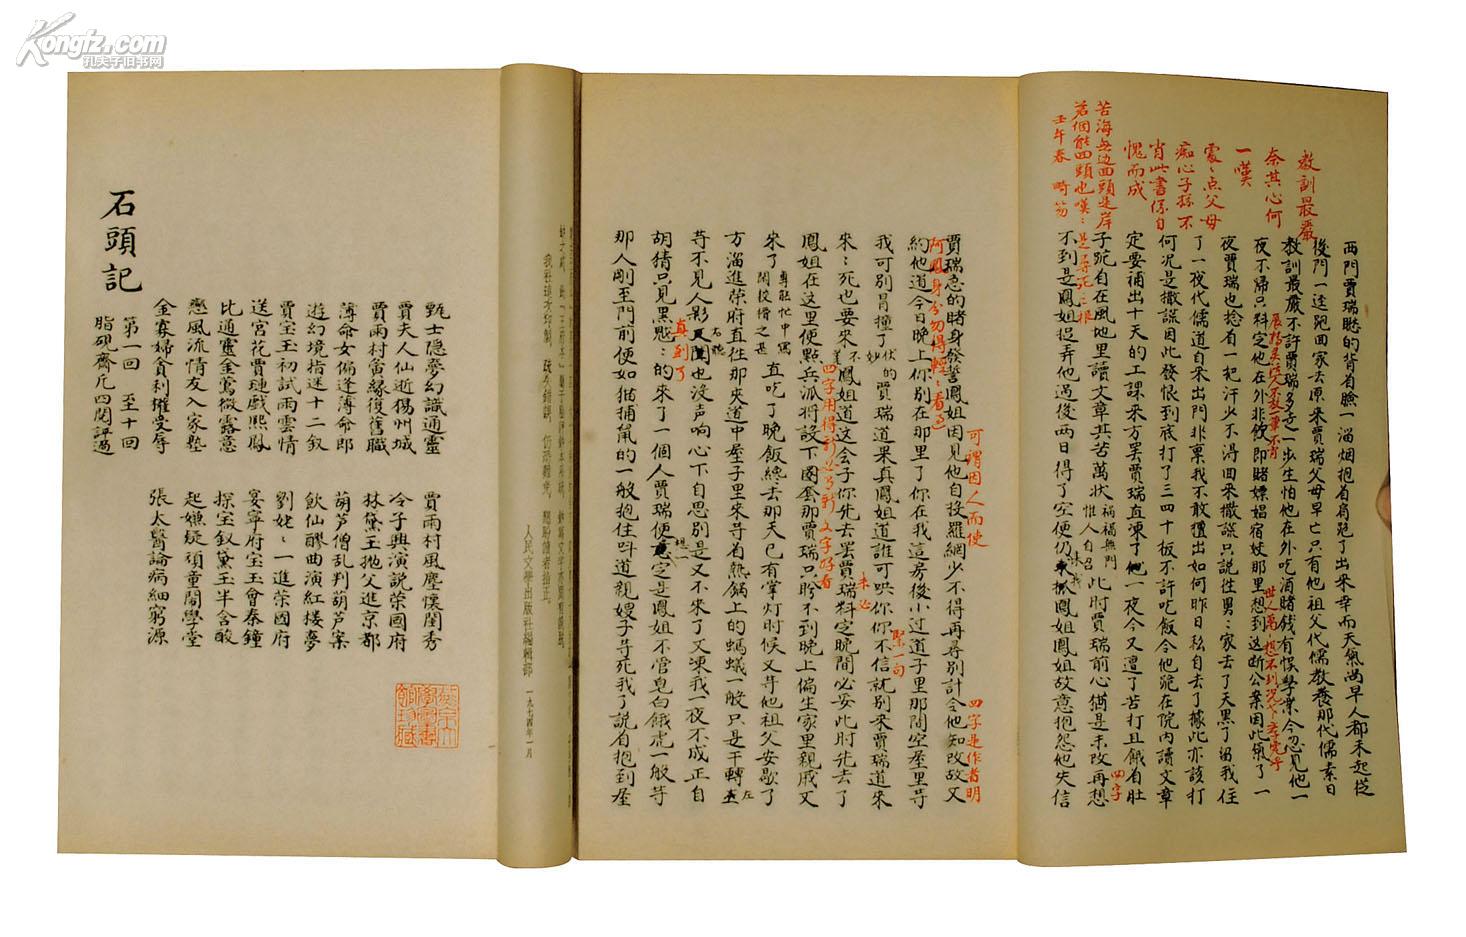 Kongfz.com
孔夫子旧书网
兩門賈瑞瞅的背着臉一溜烟抱着肩跑了出来幸而天氣尚早人都未起從
後門一迳跑回家去原来賈瑞父母早亡只有他祖父代儒教養那代儒素日
教訓最嚴不許賈瑞多走一步生怕他在外吃酒賭錢有悞學業今忽見他一
夜不歸只料定他在外非飲即賭嫖娼宿妓那里想到这断公案因此氣了一
夜賈瑞也捻着一把汗少不得回来撒謊只說往舅舅家去了天黑了留我住
了一夜代儒道自来出門非禀我不敢擅出如何昨日私自去了據此亦該打
何况是撒謊因此發恨到底打了三四十板不許吃飯令他跪在院內讀文章
定要補出十天的工課来方罢賈瑞直凍了他一夜今又遭了苦打且餓着肚
子跪自在風地里讀文章其苦萬狀
禍福無門
惟人自召
此时賈瑞前心猶是未改再想
不到是鳳姐捉弄他過後两日得了空便仍来找鳳姐鳳姐故意抱怨他失信
教訓最嚴
奈其心何
一嘆
處〻点父母
痴心子孫不
肖此書係自
愧而成
苦海無边回頭是岸
若個能回頭也嘆〻
壬午春 畸笏
世人萬〻想不到
是尋死之根
四字
賈瑞急的賭身發誓鳳姐因見他自投羅網少不得再尋别計令他知改故又
約他道今日晚上你别在那里了你在我這房後小过道子里那間空屋里等
我可别冒撞了
伏的
妙
賈瑞道果真鳳姐道誰可哄你你不信就别来賈瑞道来
来〻死也要来
不差
鳳姐道这会子你先去罢賈瑞料定晚間必妥此时先去了
鳳姐在这里便點兵派将設下圈套那賈瑞只盼不到晚上偏生家里親戚又
来了
專能忙中寫
閑狡猾之甚
直吃了晚飯纔去那天已有掌灯时候又等他祖父安歇了
方溜進荣府直往那夹道中屋子里来等着熱锅上的螞蟻一般只是干轉
左
等不見人影
右聽
也没声响心下自思别是又不来了又凍我一夜不成正自
胡猜只見黑魆〻的来了一個人賈瑞便意定是鳳姐不管皂白餓虎一般等
那人剛至門前便如猫捕鼠的一般抱住呌道親嫂子等死我了說着抱到屋
可謂因人而使
四字是作者明
阿鳳身分勿得輕〻看过
四字用得新必有新文字好看
未必
緊一句
真到了
人民文學出版社編輯部 一九七四年一月
石頭記
甄士隐夢幻識通靈 賈雨村風塵懷閨秀
賈夫人仙逝揚州城 冷子興演說荣國府
賈雨村夤緣復舊職 林黛玉抛父進京都
薄命女偏逢薄命郎 葫芦僧乱判葫芦案
遊幻境指迷十二釵 飲仙醪曲演紅楼夢
賈宝玉初試雨雲情 劉姥〻一進荣國府
送宮花賈璉戲熙鳳 宴寧府宝玉會秦鐘
比通靈金鶯微露意 探宝釵黛玉半含酸
戀風流情友入家塾 起嫌疑頑童鬧學堂
金寡婦貪利權受辱 張太醫論病細窮源
第一回 至十回
脂硯齋凡四閱評過